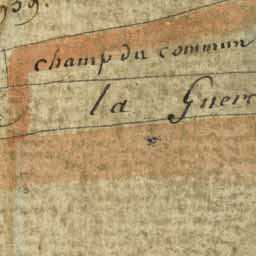 939.
champ du commun
la Guer